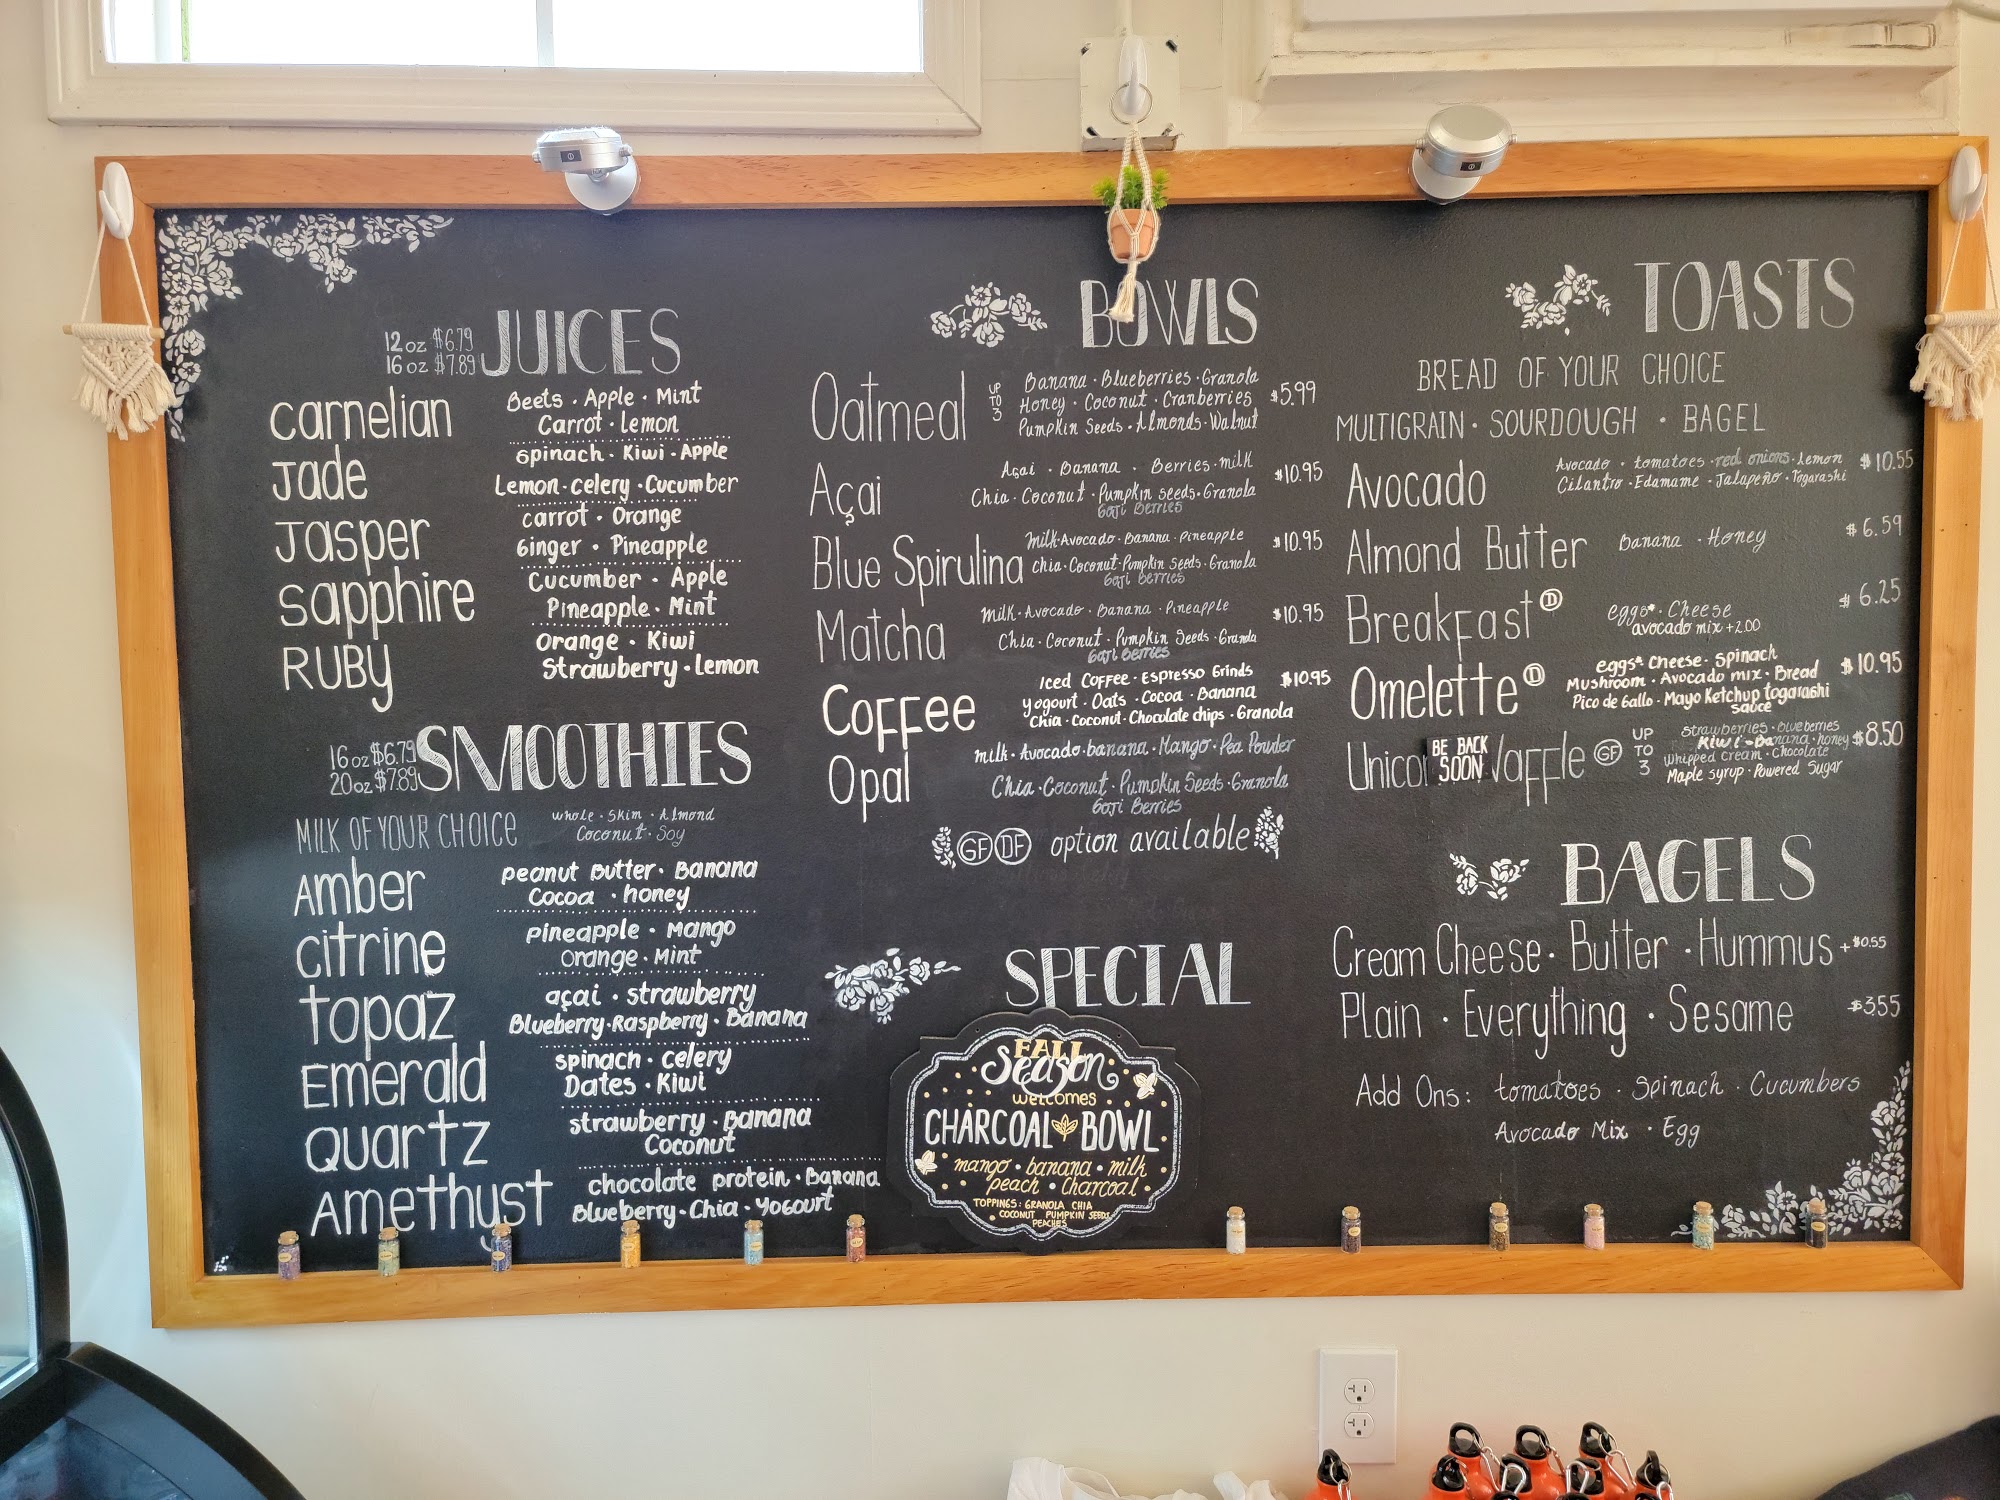 12 oz $6.79
16 oz $7.89
JUICES
Carnelian
Beets · Apple · Mint
Carrot · Lemon
Jade
Spinach · Kiwi · Apple
Lemon · Celery · Cucumber
Jasper
Carrot · Orange
Ginger · Pineapple
Sapphire
Cucumber · Apple
Pineapple · Mint
RUBY
Orange · Kiwi
Strawberry · Lemon
16 oz $6.79
20 oz $7.89
SMOOTHIES
MILK OF YOUR CHOICE
Whole · Skim · Almond
Coconut · Soy
Amber
Peanut Butter · Banana
Cocoa · honey
Citrine
Pineapple · Mango
Orange · Mint
Topaz
açai · strawberry
Blueberry · Raspberry · Banana
Emerald
spinach · celery
Dates · Kiwi
Quartz
strawberry · Banana
Coconut
Amethyst
chocolate protein · Banana
Blueberry · Chia · Yogourt
BOWLS
Oatmeal
UP
TO
3
Banana · Blueberries · Granola
Honey · Coconut · Cranberries
Pumpkin Seeds · Almonds · Walnut
$5.99
Açai
Açai · Banana · Berries · milk
Chia · Coconut · Pumpkin seeds · Granola
Goji Berries
$10.95
Blue Spirulina
Milk · Avocado · Banana · Pineapple
Chia · Coconut · Pumpkin Seeds · Granola
Goji Berries
$10.95
Matcha
Milk · Avocado · Banana · Pineapple
Chia · Coconut · Pumpkin Seeds · Granda
Goji Berries
$10.95
Coffee
Iced Coffee · Espresso Grinds
yogourt · Oats · Cocoa · Banana
Chia · Coconut · Chocolate chips · Granola
$10.95
Opal
Milk · Avocado · banana · Mango · Pea Powder
Chia · Coconut · Pumpkin Seeds · Granola
Goji Berries
GF DF option available
SPECIAL
FALL
Season
welcomes
CHARCOAL BOWL
mango · banana · milk
peach · charcoal
TOPPINGS: GRANOLA CHIA
COCONUT PUMPKIN SEEDS
PEACHES
TOASTS
BREAD OF YOUR CHOICE
MULTIGRAIN · SOURDOUGH · BAGEL
Avocado
Avocado · tomatoes · red onions · Lemon
Cilantro · Edamame · Jalapeño · Togarashi
$10.55
Almond Butter
Banana · Honey
$6.59
Breakfast D
eggs* · Cheese
avocado mix +2.00
$6.25
Omelette D
eggs* Cheese · Spinach
Mushroom · Avocado mix · Bread
Pico de Gallo · Mayo Ketchup togarashi
sauce
$10.95
Unicor
BE BACK
SOON
Waffle GF
UP
TO
3
Strawberries · Blueberries
Kiwi · Banana · honey
Whipped Cream · Chocolate
Maple syrup · Powered Sugar
$8.50
BAGELS
Cream Cheese · Butter · Hummus +$0.55
Plain · Everything · Sesame $3.55
Add Ons: tomatoes · Spinach · Cucumbers
Avocado Mix · Egg